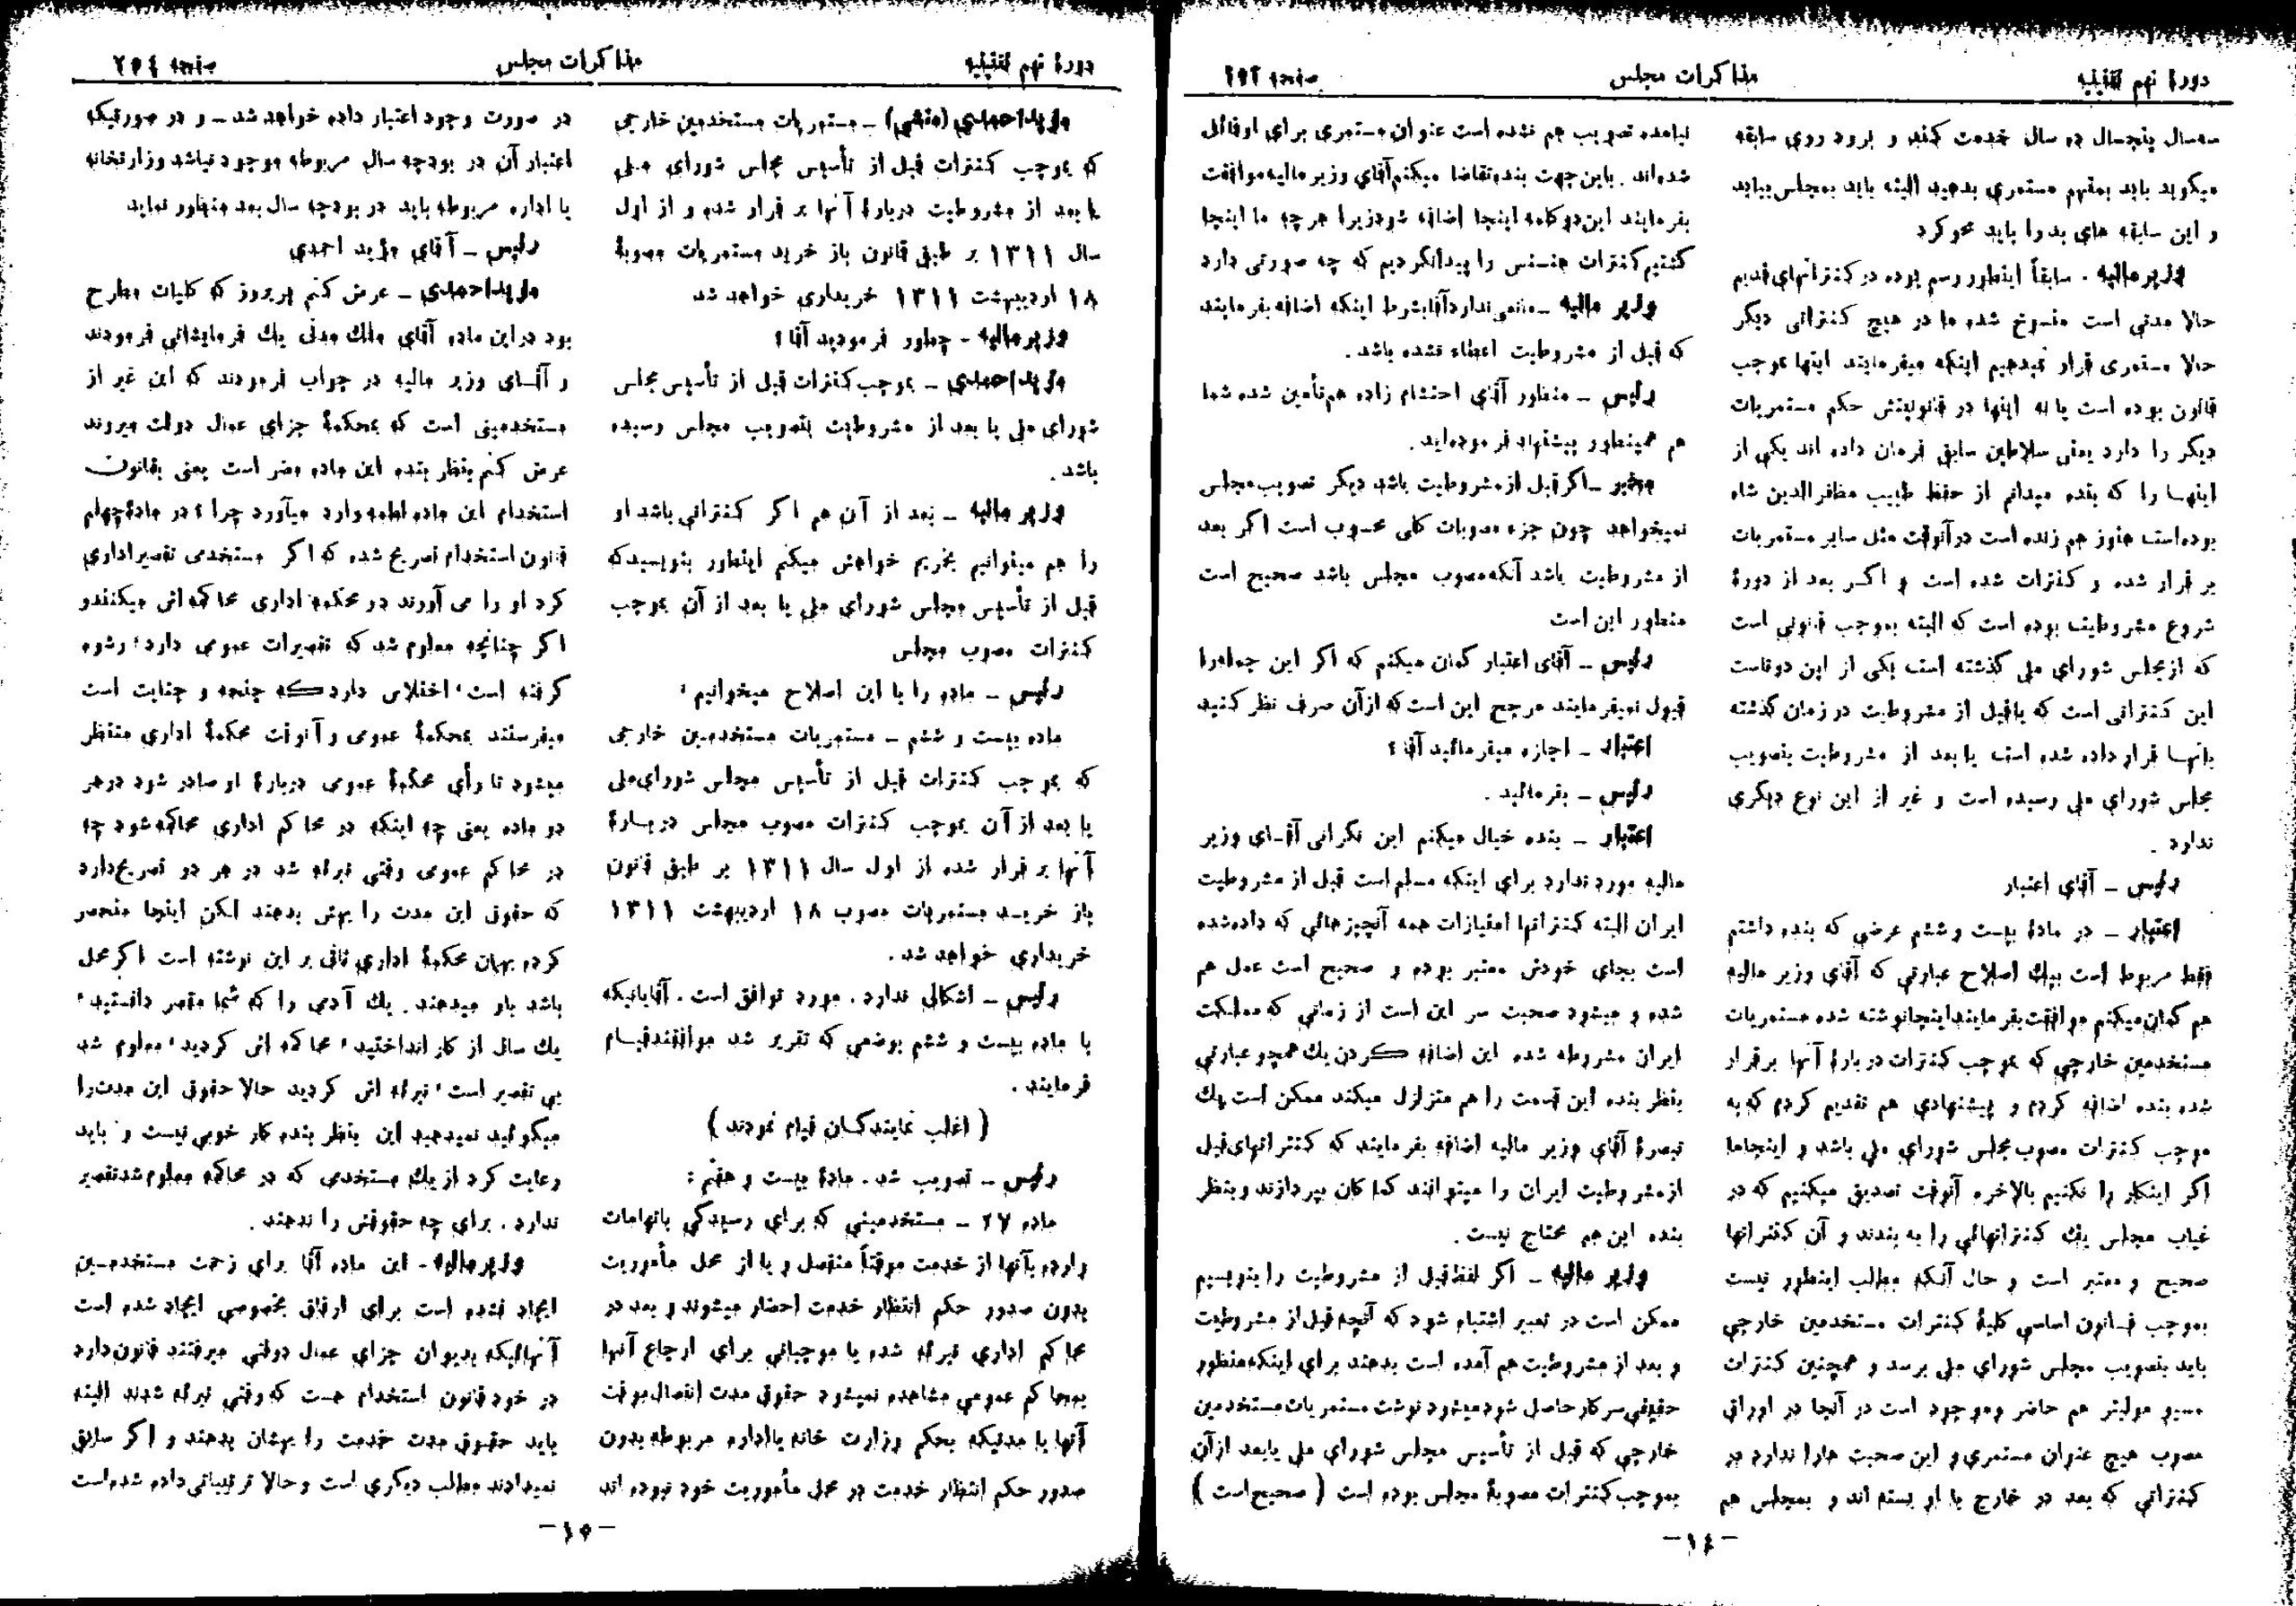 دورهٔ نهم تقنینیه
مذاکرات مجلس
صفحه
سه‌سال پنجسال ده سال خدمت کند و برود روی سابقه
میگوید باید بمنهم مستمری بدهید البته باید بمجلس بیاید
و این سابقه های بد را باید محو کرد
وزیر مالیه . سابقاً اینطور رسم بوده در کنتراتهای قدیم
حالا مدتی است منسوخ شده ما در هیچ کنتراتی دیگر
حالا مستمری قرار نمیدهیم اینکه میفرمایند اینها بموجب
قانون بوده است یا نه اینها در قانونیتش حکم مستمریات
دیگر را دارد یعنی سلاطین سابق فرمان داده اند یکی از
اینها را که بنده میدانم از حفظ طبیب مظفرالدین شاه
بوده‌است هنوز هم زنده است در آنوقت مثل سایر مستمریات
برقرار شده و کنترات شده است و اگر بعد از دورهٔ
شروع مشروطیت بوده است که البته بموجب قانونی است
که از مجلس شورای ملی گذشته است یکی از این دوتاست
این کنتراتی است که یا قبل از مشروطیت در زمان گذشته
بآنها قرار داده شده است یا بعد از مشروطیت بتصویب
مجلس شورای ملی رسیده است و غیر از این نوع دیگری
ندارد .
رئیس ــ آقای اعتبار
اعتبار ــ در مادهٔ بیست و ششم عرضی که بنده داشتم
فقط مربوط است بیک اصلاح عبارتی که آقای وزیر مالیه
هم گمان میکنم موافقت بفرمایند اینجا نوشته شده مستمریات
مستخدمین خارجی که بموجب کنترات در بارهٔ آنها برقرار
شده بنده اضافه کردم و پیشنهادی هم تقدیم کردم که به
موجب کنترات مصوب مجلس شورای ملی باشد و اینجاما
اگر اینکار را نکنیم بالاخره آنوقت تصدیق میکنیم که در
غیاب مجلس یک کنتراتهائی را به بندند و آن کنتراتها
صحیح و معتبر است و حال آنکه مطلب اینطور نیست
بموجب قانون اساسی کلیهٔ کنترات مستخدمین خارجی
باید بتصویب مجلس شورای ملی برسد و همچنین کنترات
مسیو مولیتر هم حاضر و موجود است در آنجا در اوراق
مصوب هیچ عنوان مستمری و این صحبت هارا ندارد در
کنتراتی که بعد در خارج با او بسته اند و بمجلس هم
نیامده تصویب هم نشده است عنوان مستمری برای او قائل
شده‌اند . باین جهت بنده تقاضا میکنم آقای وزیر مالیه موافقت
بفرمایند این دو کلمه اینجا اضافه شود زیرا هر چه ما اینجا
گشتیم کنترات را پیدا نکردیم که چه صورتی دارد
وزیر مالیه ــ مانعی ندارد آقا بشرط اینکه اضافه بفرمایند
که قبل از مشروطیت اعطاء نشده باشد .
رئیس ــ منظور آقای احتشام زاده هم تأمین شده شما
هم همینطور پیشنهاد فرموده‌اید .
مخبر ــ اگر قبل از مشروطیت باشد دیگر تصویب مجلس
نمیخواهد چون جزء مصوبات کلی محسوب است اگر بعد
از مشروطیت باشد آنکه مصوب مجلس باشد صحیح است
منظور این است
رئیس ــ آقای اعتبار گمان میکنم که اگر این جمله را
قبول نمیفرمایند مرجح این است که از آن صرف نظر کنید
اعتبار ــ اجازه میفرمائید آقا ؟
رئیس ــ بفرمائید .
اعتبار ــ بنده خیال میکنم این نگرانی آقای وزیر
مالیه مورد ندارد برای اینکه مسلم است قبل از مشروطیت
ایران البته کنتراتها امتیازات همه آنچیزهائی که داده شده
است بجای خودش معتبر بوده و صحیح است عمل هم
شده و میشود صحبت سر این است از زمانی که مملکت
ایران مشروطه شده این اضافه کردن یک همچو عبارتی
بنظر بنده این قسمت را هم متزلزل میکند ممکن است یک
تبصرهٔ آقای وزیر مالیه اضافه بفرمایند که کنتراتهای قبل
از مشروطیت ایران را میتوانند کما کان بپردازند و بنظر
بنده این هم محتاج نیست .
وزیر مالیه ــ اگر لفظ قبل از مشروطیت را بنویسیم
ممکن است در تعبیر اشتباه شود که آنچه قبل از مشروطیت
و بعد از مشروطیت هم آمده است بدهند برای اینکه منظور
حقیقی سرکار حاصل شود میشود نوشت مستمریات مستخدمین
خارجی که قبل از تأسیس مجلس شورای ملی یا بعد از آن
بموجب کنترات مصوبهٔ مجلس بوده است ( صحیح است )
ــ ۱۴ ــ
دورهٔ نهم تقنینیه
مذاکرات مجلس
صفحه ۲۵٤
مؤیداحمدی (منشی) ــ مستمریات مستخدمین خارجی
که بموجب کنترات قبل از تأسیس مجلس شورای ملی
یا بعد از مشروطیت دربارهٔ آنها برقرار شده و از اول
سال ۱۳۱۱ بر طبق قانون باز خرید مستمریات مصوبهٔ
۱۸ اردیبهشت ۱۳۱۱ خریداری خواهد شد
وزیر مالیه ــ چطور فرمودید آقا ؟
مؤید احمدی ــ بموجب کنترات قبل از تأسیس مجلس
شورای ملی یا بعد از مشروطیت بتصویب مجلس رسیده
باشد .
وزیر مالیه ــ بعد از آن هم اگر کنتراتی باشد او
را هم میتوانیم بخریم خواهش میکنم اینطور بنویسید که
قبل از تأسیس مجلس شورای ملی یا بعد از آن بموجب
کنترات مصوب مجلس
رئیس ــ ماده را با این اصلاح میخوانیم :
ماده بیست و ششم ــ مستمریات مستخدمین خارجی
که بموجب کنترات قبل از تأسیس مجلس شورای ملی
یا بعد از آن بموجب کنترات مصوب مجلس دربارهٔ
آنها برقرار شده از اول سال ۱۳۱۱ بر طبق قانون
باز خرید مستمریات مصوب ۱۸ اردیبهشت ۱۳۱۱
خریداری خواهد شد .
رئیس ــ اشکالی ندارد . مورد توافق است . آقایانیکه
با ماده بیست و ششم بوضعی که تقریر شد موافقند قیام
فرمایند .
( اغلب نمایندگان قیام نمودند )
رئیس ــ تصویب شد . مادهٔ بیست و هفتم :
ماده ۲۷ ــ مستخدمینی که برای رسیدگی باتهامات
وارده بآنها از خدمت موقتاً منفصل و یا از محل مأموریت
بدون صدور حکم انتظار خدمت احضار میشوند و بعد در
محاکم اداری تبرئه شده یا موجباتی برای ارجاع آنها
بمحاکم عمومی مشاهده نمیشود حقوق مدت انفصال موقت
آنها یا مدتیکه بحکم وزارت خانه یا اداره مربوطه بدون
صدور حکم انتظار خدمت در محل مأموریت خود نبوده اند
در صورت وجود اعتبار داده خواهد شد ــ و در صورتیکه
اعتبار آن در بودجه سال مربوطه موجود نباشد وزارتخانه
یا اداره مربوطه باید در بودجه سال بعد منظور نماید
رئیس ــ آقای مؤید احمدی
مؤیداحمدی ــ عرض کنم پریروز که کلیات مطرح
بود دراین ماده آقای ملک مدنی یک فرمایشاتی فرمودند
و آقای وزیر مالیه در جواب فرمودند که این غیر از
مستخدمینی است که بمحکمهٔ جزای عمال دولت میروند
عرض کنم بنظر بنده این ماده مضر است یعنی بقانون
استخدام این ماده لطمه وارد میآورد چرا ؟ در مادهٔ چهلم
قانون استخدام تصریح شده که اگر مستخدمی تقصیر اداری
کرد او را می آورند در محکمه اداری محاکمه‌اش میکنند و
اگر چنانچه معلوم شد که تقصیرات عمومی دارد ، رشوه
گرفته است ، اختلاس دارد که جنحه و جنایت است
میفرستند بمحکمهٔ عمومی و آنوقت محکمهٔ اداری منتظر
میشود تا رأی محکمهٔ عمومی دربارهٔ او صادر شود در هر
دو ماده یعنی چه اینکه در محاکم اداری محاکمه شود چه
در محاکم عمومی وقتی تبرئه شد در هر دو تصریح دارد
که حقوق این مدت را بهش بدهند لکن اینجا منحصر
کرده بهمان محکمهٔ اداری ثانی بر این نوشته است اگر محل
باشد باو میدهند . یک آدمی را که شما مقصر دانستید ،
یک سال از کار انداختید ، محاکمه اش کردید ، معلوم شد
بی تقصیر است ، تبرئه اش کردید حالا حقوق این مدت را
میگوئید نمیدهید این بنظر بنده کار خوبی نیست و باید
رعایت کرد از یک مستخدمی که در محاکمه معلوم شد تقصیر
ندارد . برای چه حقوقش را ندهند .
وزیر مالیه ــ این ماده آقا برای زحمت مستخدمین
ایجاد نشده است برای ارفاق بخصوصی ایجاد شده است
آنهائیکه بدیوان جزای عمال دولتی میرفتند قانون دارد
در خود قانون استخدام هست که وقتی تبرئه شدند البته
باید حقوق مدت خدمت را بهشان بدهند و اگر سابق
نمیدادند مطلب دیگری است و حالا ترتیباتی داده شده‌است
ــ ۱۵ ــ